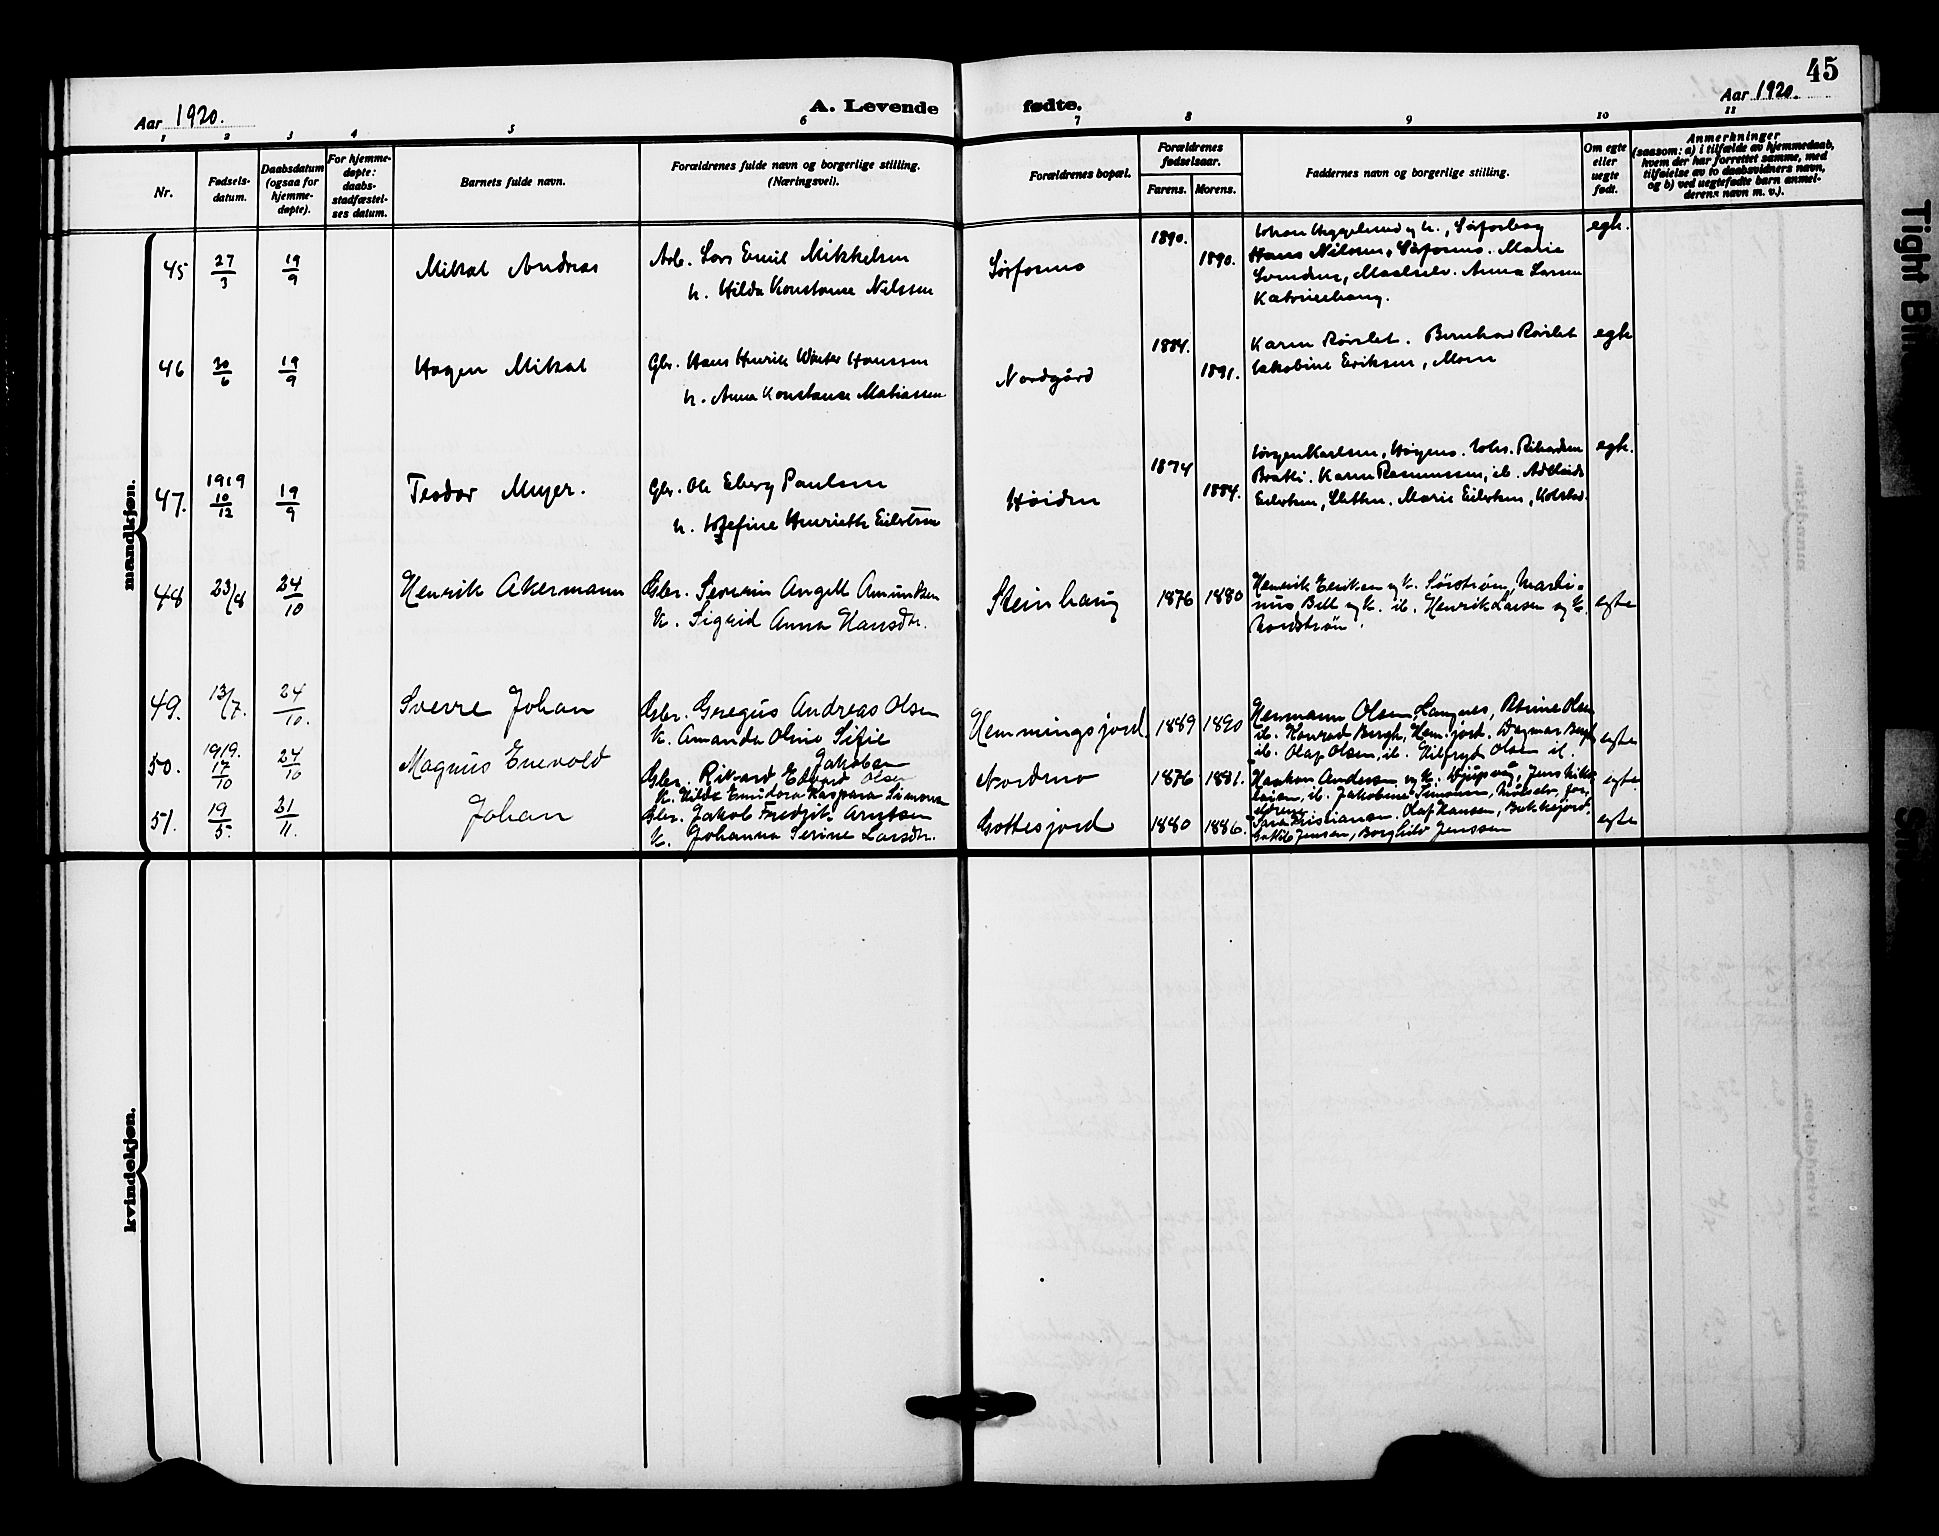 45
Aar 1920.
A. Levende fødte.
Aar 1920.
1 2 3 4 5 6 7 8 9 10 11
Nr.
Fødsels-
datum.
Daabsdatum
(ogsaa for
hjemme-
døpte).
For hjemme-
døpte:
daabs-
stadfæstel-
ses datum.
Barnets fulde navn.
Forældrenes fulde navn og borgerlige stilling.
(Næringsvei).
Forældrenes bopæl.
Forældrenes
fødselsaar.
Farens. Morens.
Faddernes navn og borgerlige stilling.
Om egte
eller
uegte
født.
Anmerkninger
(saasom: a) i tilfælde av hjemmedaab,
hvem der har forrettet samme, med
tilføielse av to daabsvidners navn,
og b) ved uegtefødte barn anmel-
derens navn m. v.).
mandkjøn.
45 27/3 19/9 Mikal Andreas
Arb. Lars Emil Mikkelsen
h. Hilda Konstanse Nilssen
Sørfosmo 1890. 1890.
Hans Nilssen, Sørfosmo. Marie
Maalselv. Anna Larsen
egte.
46 30/6 19/9 Hagen Mikal
Gbr. Hans Henrik Winter Hanssen
h. Anna Konstanse Matiassen
Nordgård 1884. 1891.
Karen Rørslet. Bernhard Rørslet
Jakobine Eriksen, Moen
egte
47. 1919 10/12 19/9 Teodor Meyer.
Gbr. Ole Eberg Paulsen
h. Josefine Henriette Eilertsen
Høiden 1874 1884.
Jørgen Karlsen, Johs. Rikardsen
Brakli. Karen Rasmussen, ib. Adelaide
Eilertsen, Sletten. Marie Eilertsen,
egte.
48 23/8 24/10 Henrik Akermann
Gbr. Severin Angell Amundsen
K. Sigrid Anna Hansdtr.
Steinhaug 1876 1880
Henrik Eriksen og K. Sørstrøm, Marti-
nus Bell og K. ib. Henrik Larsen og K.
Nordstrøm.
egte
49. 13/7. 24/10. Sverre Johan
Gbr. Gregus Andreas Olsen
K. Amanda Oline Sifie
Jakobsen
Hemmingsjord 1889 1890
Hermann Olsen, Langnes, Petrine Olsen
ib. Konrad Bergh, Hem.jord. Dagmar Bergh
ib. Olaf Olsen, ib. Hilfryd Olsen ib.
egte
50. 1919. 17/10 24/10 Magnus Enevold
Gbr. Rikard Edvard Olsen
K. Hilda Emidora Kaspara
Nordmo 1876 1881.
Haakon Andersen og K. Djupvåg, Jens Niko-
laisen, ib. Jakobine Simonsen,
egte
51. 19/5 21/11. Johan
Gbr. Jakob Fredrik Arntsen
K. Johanna Serine Larsdtr.
Gottesjord 1880 1886.
Kristiansen. Olaf Hansen, Bukkejord.
Jensen, Borghild Jenssen
egte
kvindekjøn.
Tight Bi